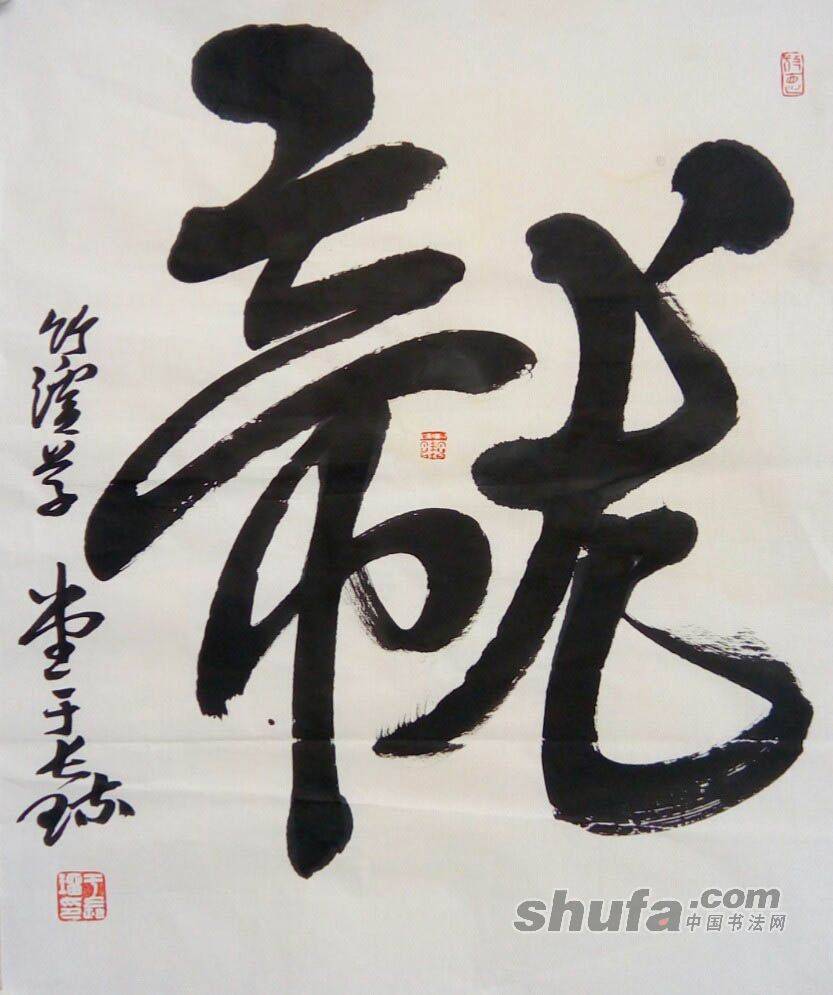 龍
竹溪草堂于长
shufa.com
中国书法网